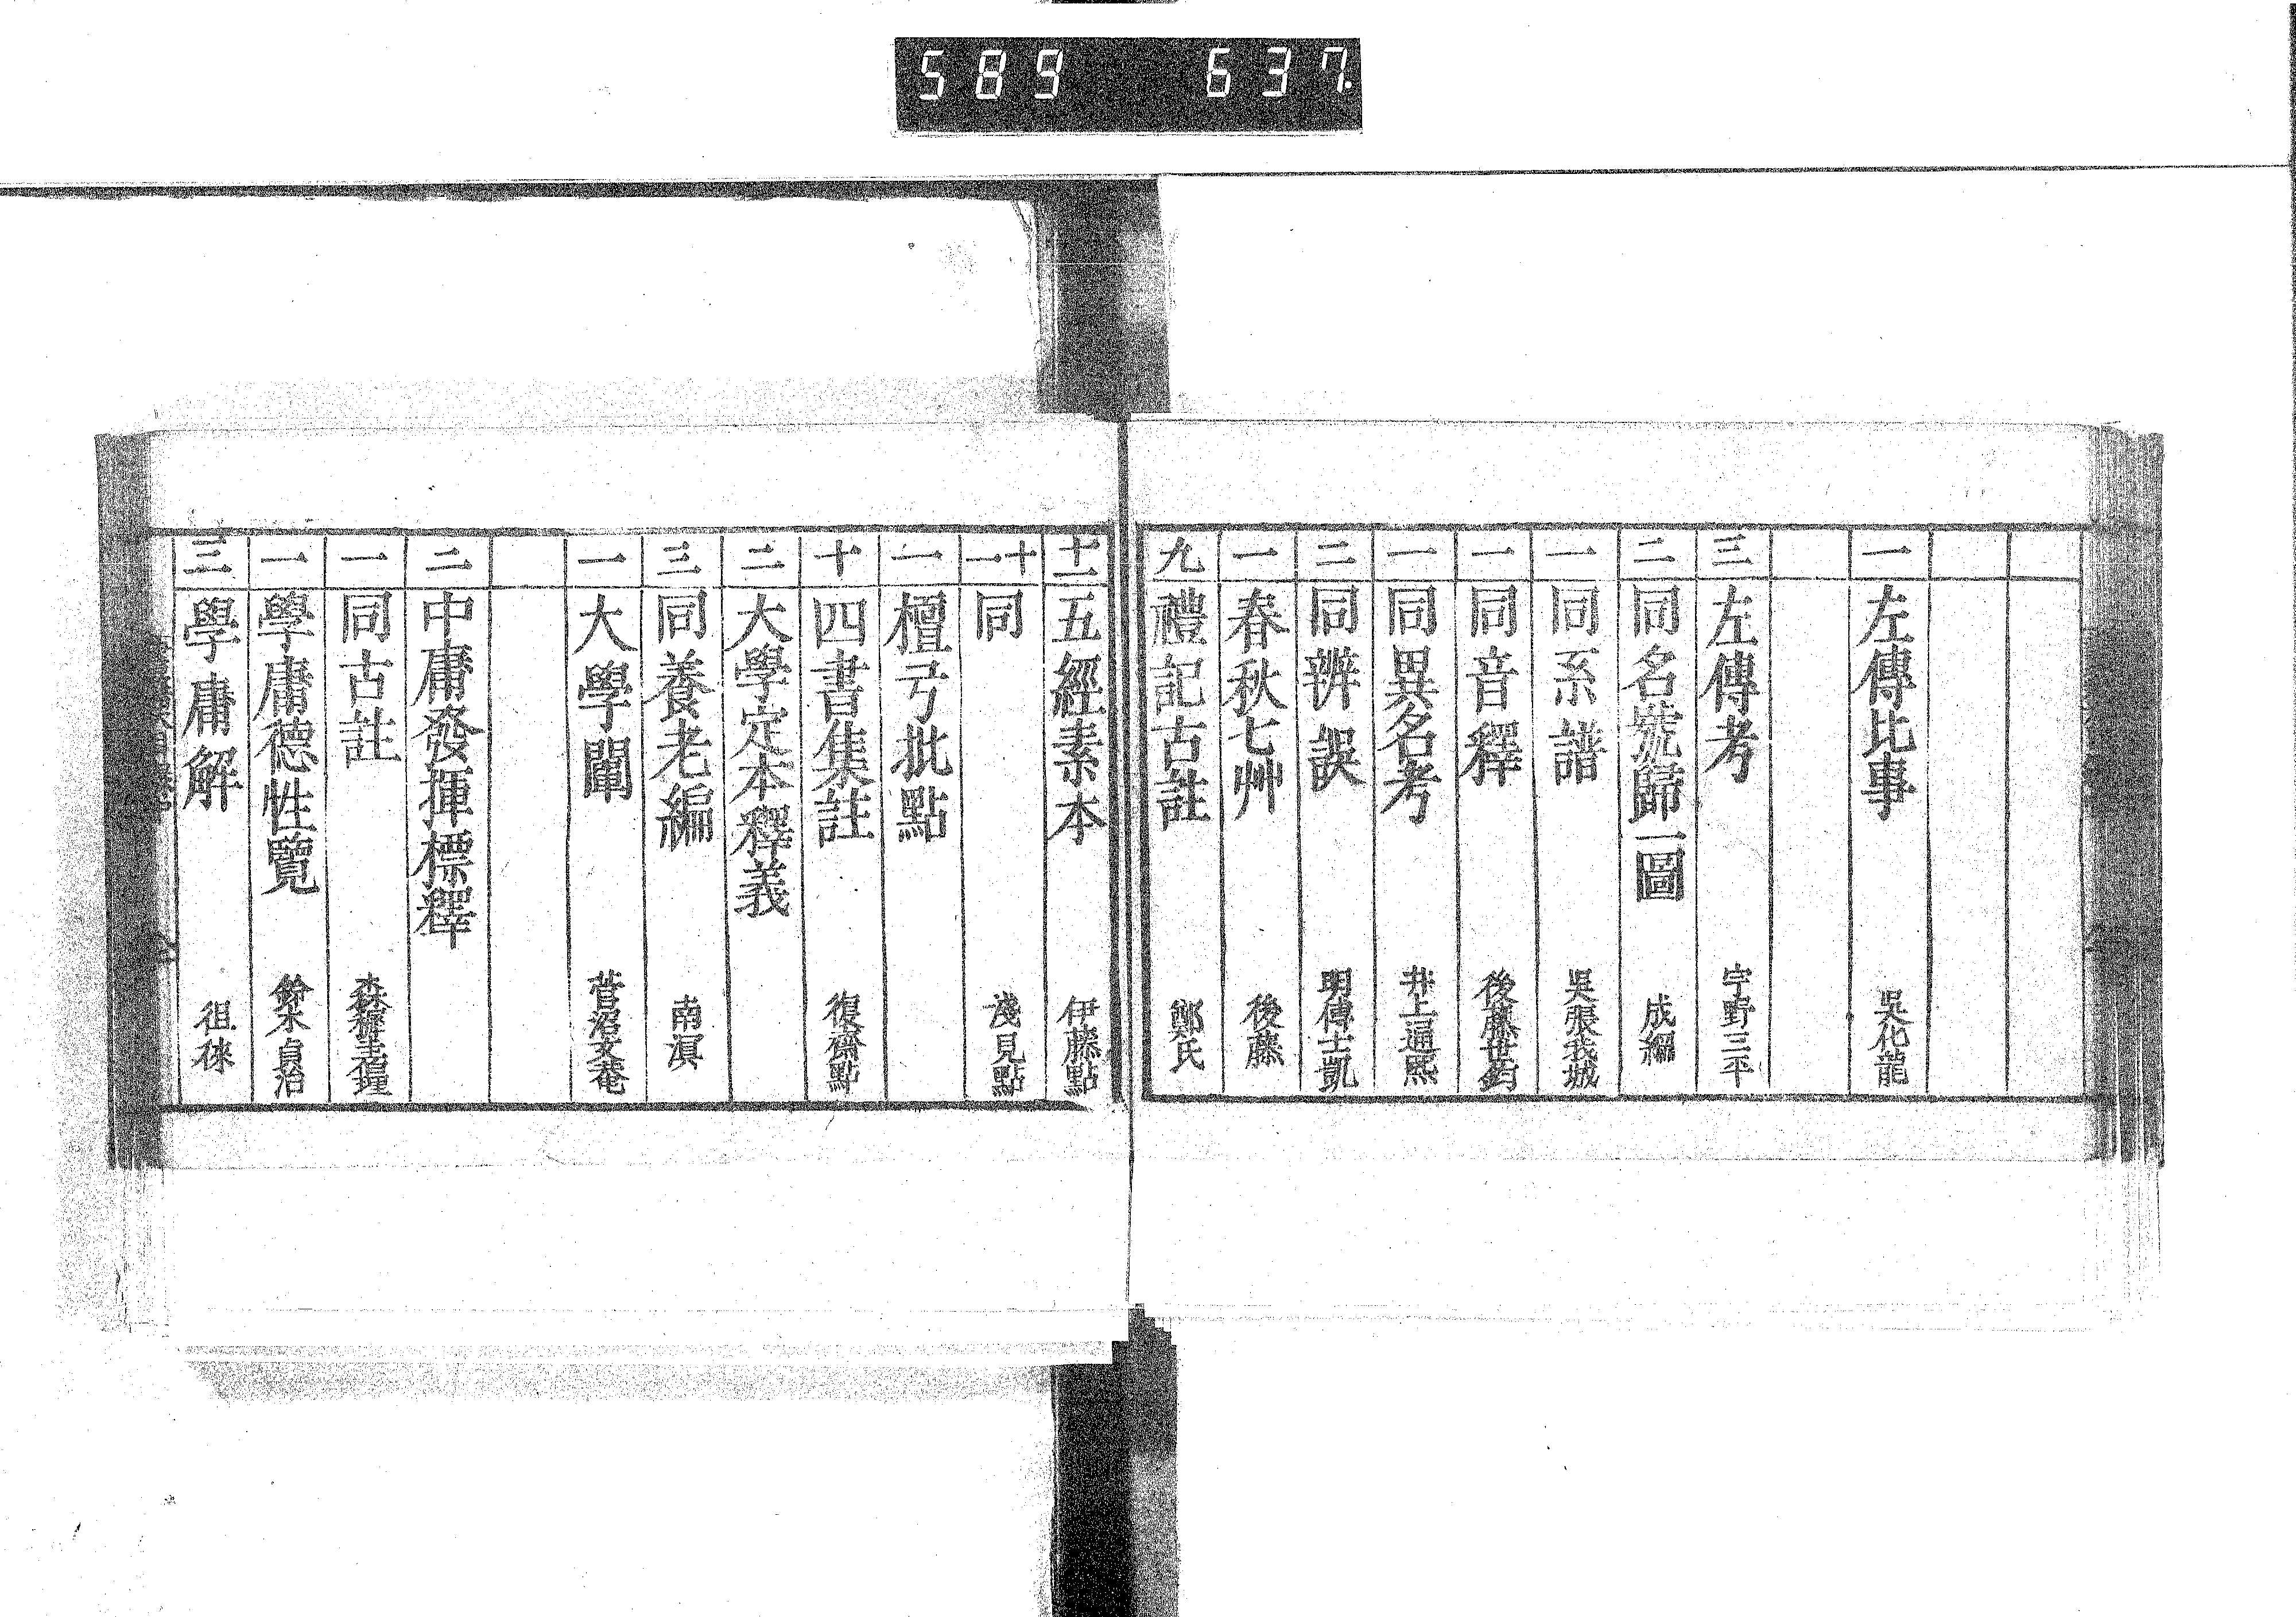 589 637
一 左傳比事 吳化龍
三 左傳考 宇野三平
二 同名號歸一圖 成編
一 同系譜 吳張我城
一 同音釋 後藤世鈞
一 同異名考 井上通熙
二 同辨誤 明傅士凱
一 春秋七艸 後藤
九 禮記古註 鄭氏
十一 五經素本 伊藤點
十一 同 淺見點
一 檀弓批點
十 四書集註 復齋點
二 大學定本釋義
三 同養老編 南溟
一 大學闡 菅沼文菴
二 中庸發揮標釋
一 同古註
一 學庸德性覽 鈴木貞治
三 學庸解 徂徠